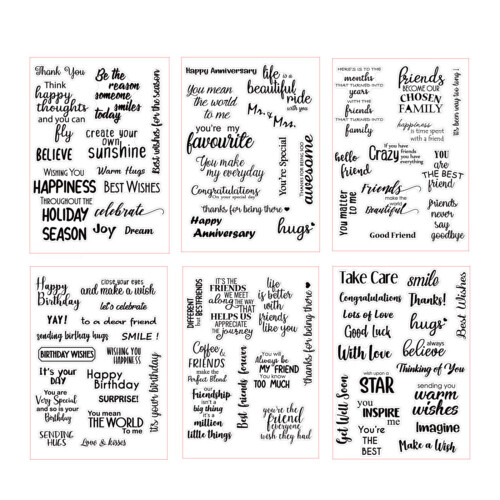 Thank You
Be the
reason
someone
smiles
today
Think
happy
thoughts
and you can
fly
Best wishes for the season
create your
own
sunshine
BELIEVE
WISHING YOU
Warm Hugs
HAPPINESS
BEST WISHES
THROUGHOUT THE
HOLIDAY
celebrate
SEASON
Joy
Dream
Happy Anniversary
life is a
beautiful
ride
with you
You mean
the world
to me
Mr. & Mrs.
you're my
favourite
You make
my everyday
You're Special
THANKS FOR BEING SOO
awesome
Congratulations
On your special day
thanks for being there
Happy
Anniversary
hugs
HERE'S IS TO THE
months
THAT TURNED INTO
years
WITH THE
friends
THAT TURNED INTO
family
friends
BECOME OUR
CHOSEN
FAMILY
happiness
is time spent
with a friend
it's been way too long!
hello
friend
If you have
Crazy
friends
you have
everything
YOU
are
THE BEST
friend
You matter
to me
Friends
make the
world
Beautiful
friends
never
say
goodbye
Good Friend
Happy
Birthday
close your eyes
and make a wish
let's celebrate
YAY!
to a dear friend
sending birthday hugs
SMILE!
BIRTHDAY WISHES
WISHING YOU
HAPPINESS
It's your
DAY
Happy
Birthday
You are
Very Special
and so is your
Birthday
SURPRISE!
You mean
THE WORLD
To me
SENDING
HUGS
Love & kisses
it's your birthday
DIFFERENT
but BESTFRIENDS
IT'S THE
FRIENDS
WE MEET
along THE WAY
THAT
HELPS US
APPRECIATE
the journey
life
is better
with
friends
like you
thanks for being there
Coffee
& FRIENDS
make the
Perfect Blend
Best friends forever
You will
Always be
MY FRIEND
You know
TOO MUCH
our
Friendship
isn't a
big thing
it's a
million
little things
you're the
friend
everyone
wish they had
Take Care
smile
Congratulations
Thanks!
Best Wishes
Lots of Love
Good Luck
hugs
With Love
always
believe
Thinking of You
wish upon a
STAR
sending you
warm
wishes
Get Well Soon
you
INSPIRE
me
Imagine
You're
THE
BEST
Make a Wish